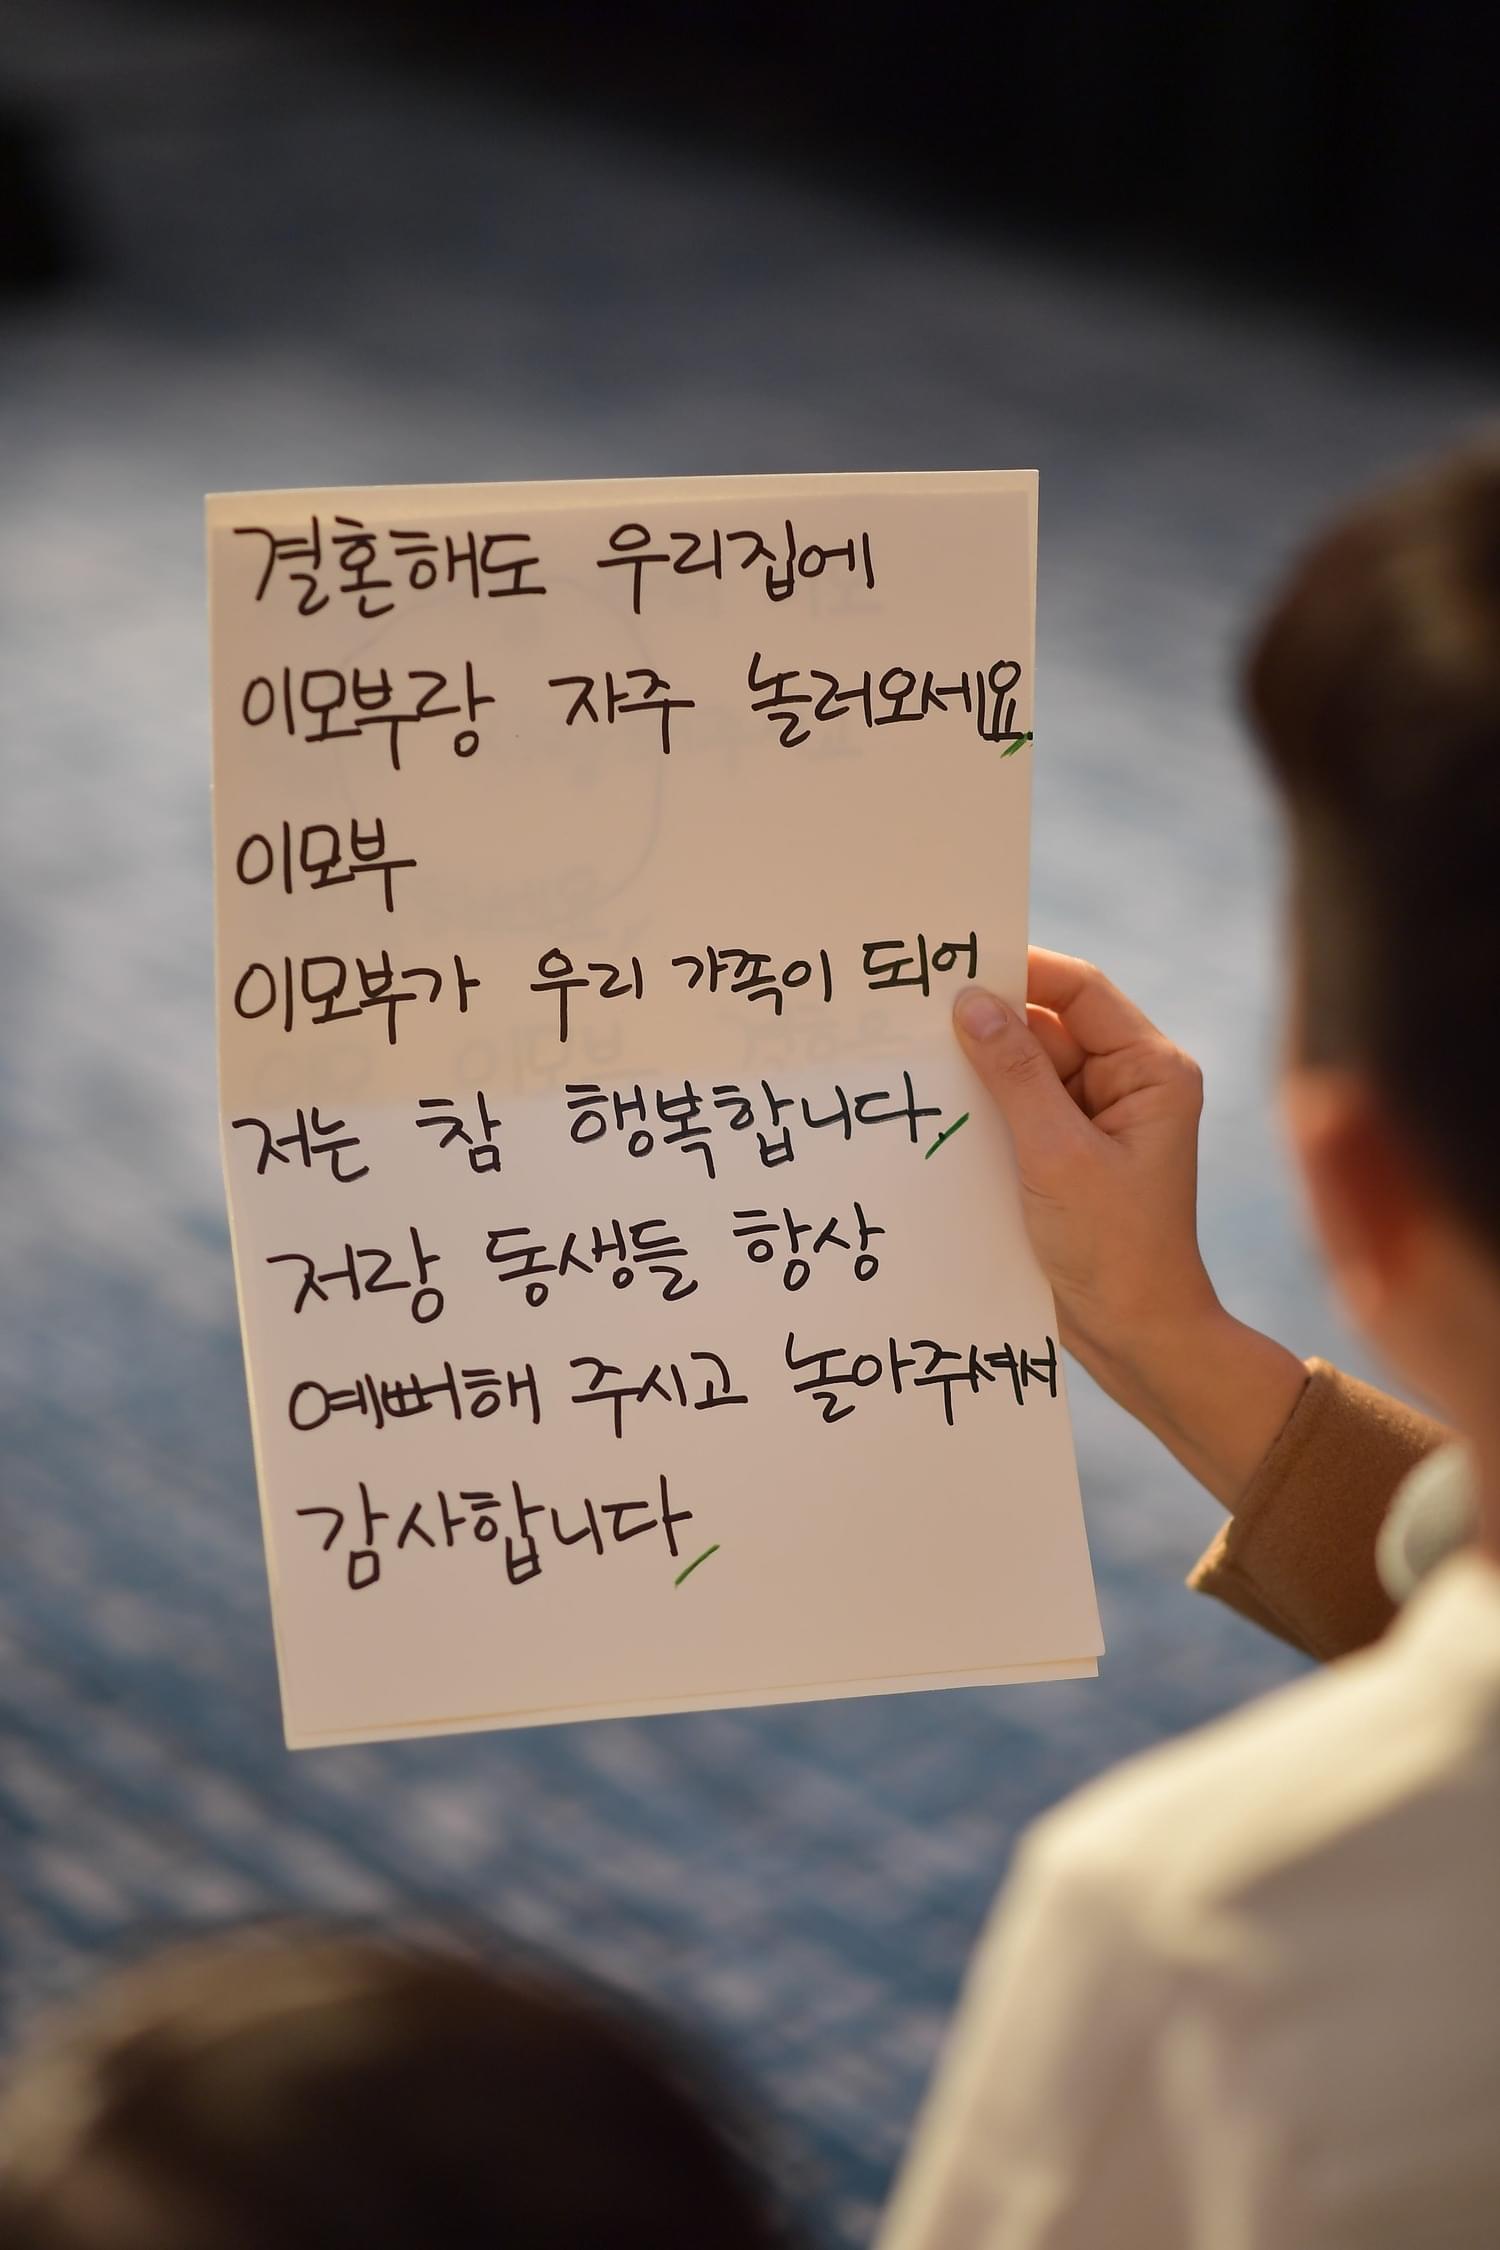 결혼해도 우리집에
이모부랑 자주 놀러오세요.
이모부
이모부가 우리 가족이 되어
저는 참 행복합니다.
저랑 동생들 항상
예뻐해 주시고 놀아주셔서
감사합니다